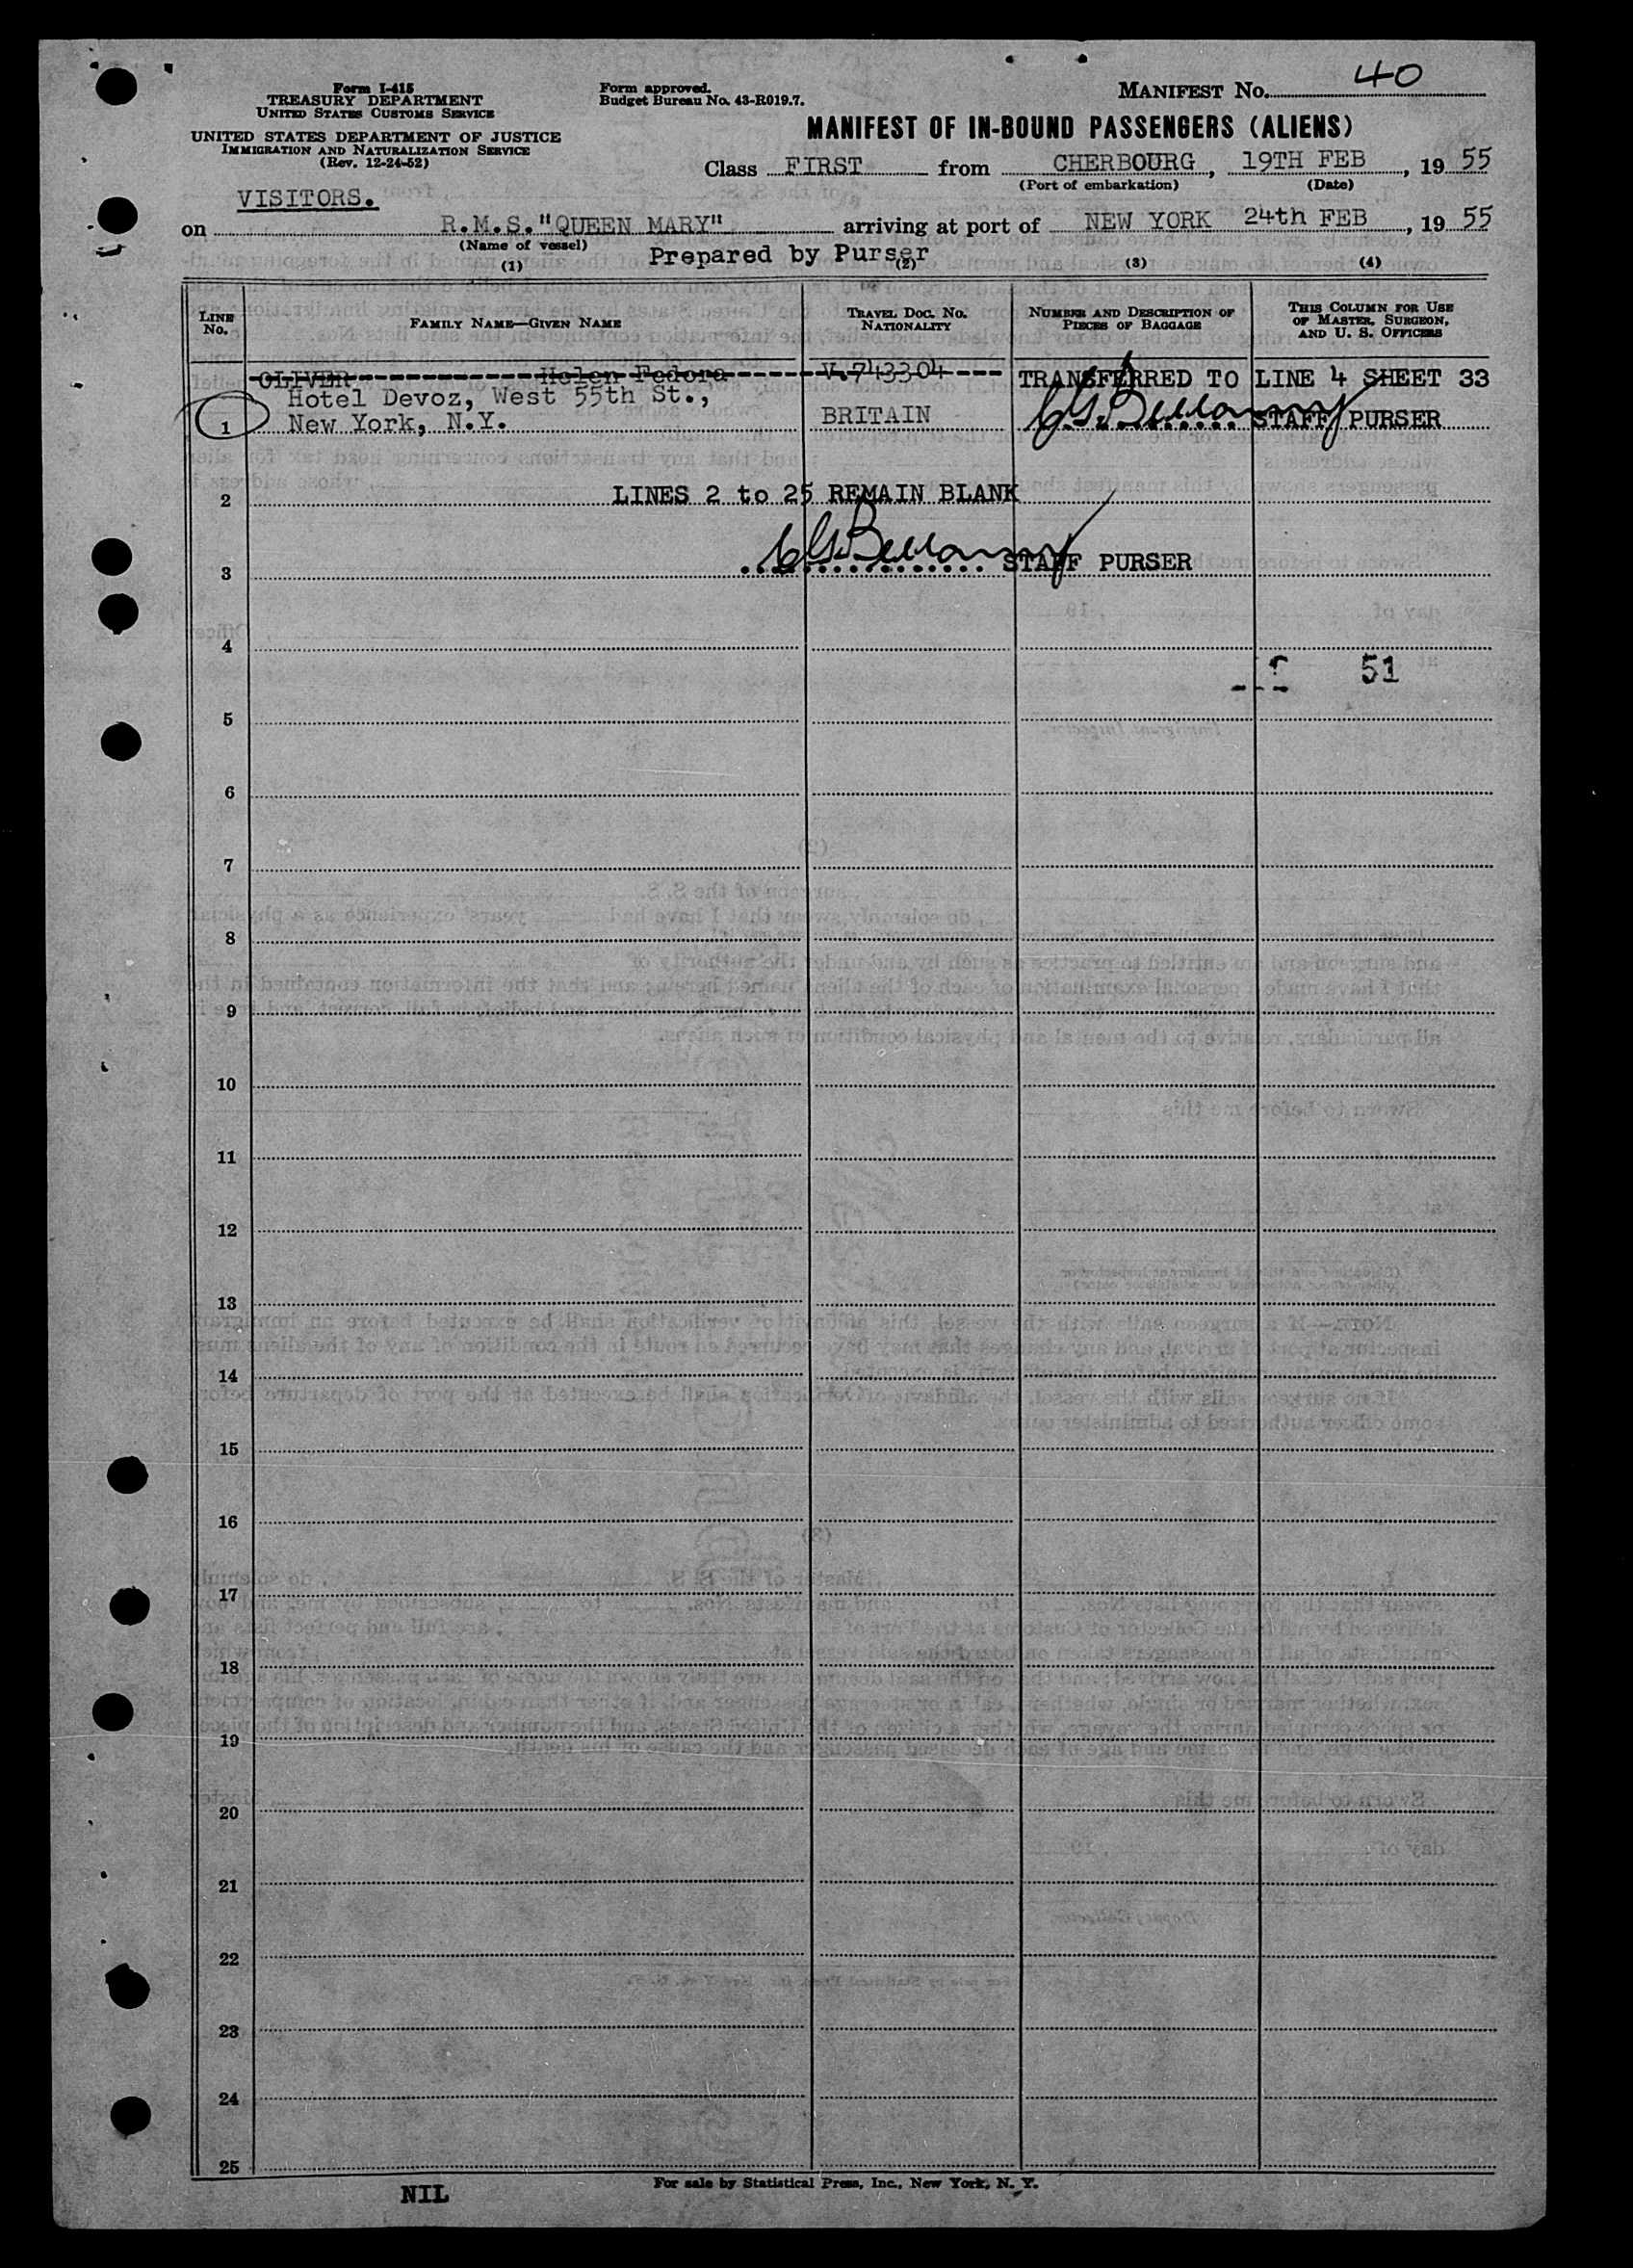 Form I-415
TREASURY DEPARTMENT
UNITED STATES CUSTOMS SERVICE
UNITED STATES DEPARTMENT OF JUSTICE
IMMIGRATION AND NATURALIZATION SERVICE
(Rev. 12-24-52)
Form approved.
Budget Bureau No. 43-R019.7.
MANIFEST No. 40
MANIFEST OF IN-BOUND PASSENGERS (ALIENS)
Class FIRST from CHERBOURG, 19TH FEB, 1955
(Port of embarkation) (Date)
VISITORS.
on R.M.S."QUEEN MARY" arriving at port of NEW YORK 24th FEB, 1955
(Name of vessel)
Prepared by Purser
(1) (2) (3) (4)
LINE No. FAMILY NAME—GIVEN NAME TRAVEL DOC. NO. NATIONALITY NUMBER AND DESCRIPTION OF PIECES OF BAGGAGE THIS COLUMN FOR USE OF MASTER, SURGEON, AND U. S. OFFICERS
OLIVER Helen Fedora V.743304 TRANSFERRED TO LINE 4 SHEET 33
Hotel Devoz, West 55th St.,
1 New York, N.Y. BRITAIN STAFF PURSER
2 LINES 2 to 25 REMAIN BLANK
3 STAFF PURSER
4
51
5
6
7
8
9
10
11
12
13
14
15
16
17
18
19
20
21
22
23
24
25
NIL
For sale by Statistical Press, Inc., New York, N. Y.